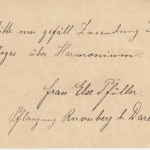 Bitte um gefäll. Zusendung
loges über Harmonium.
Frau Else Pfüller.
Pflanzung b. Dare